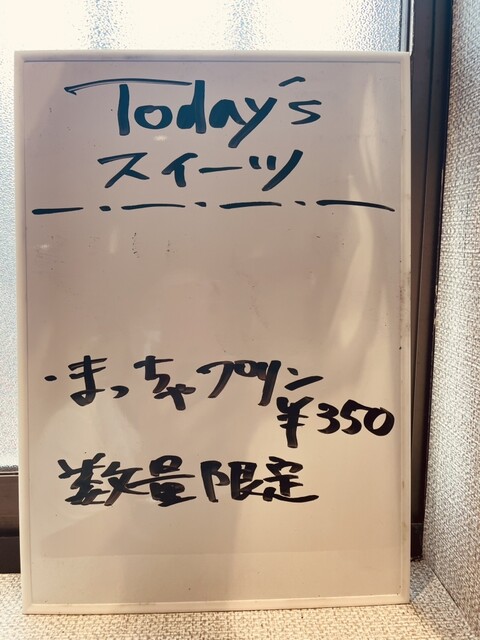 Today's
スイーツ
・まっちゃプリン
¥350
数量限定